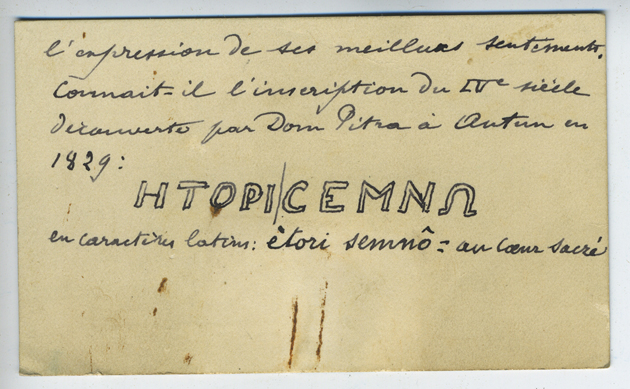 l'expression de ses meilleurs sentements.
Connait-il l'inscription du IVe siècle
découverte par Dom Pitra à Autun en
1829:
ΗΤΟΡΙ/CΕΜΝΩ
en caractères latins: ètori semnô = au cœur sacré